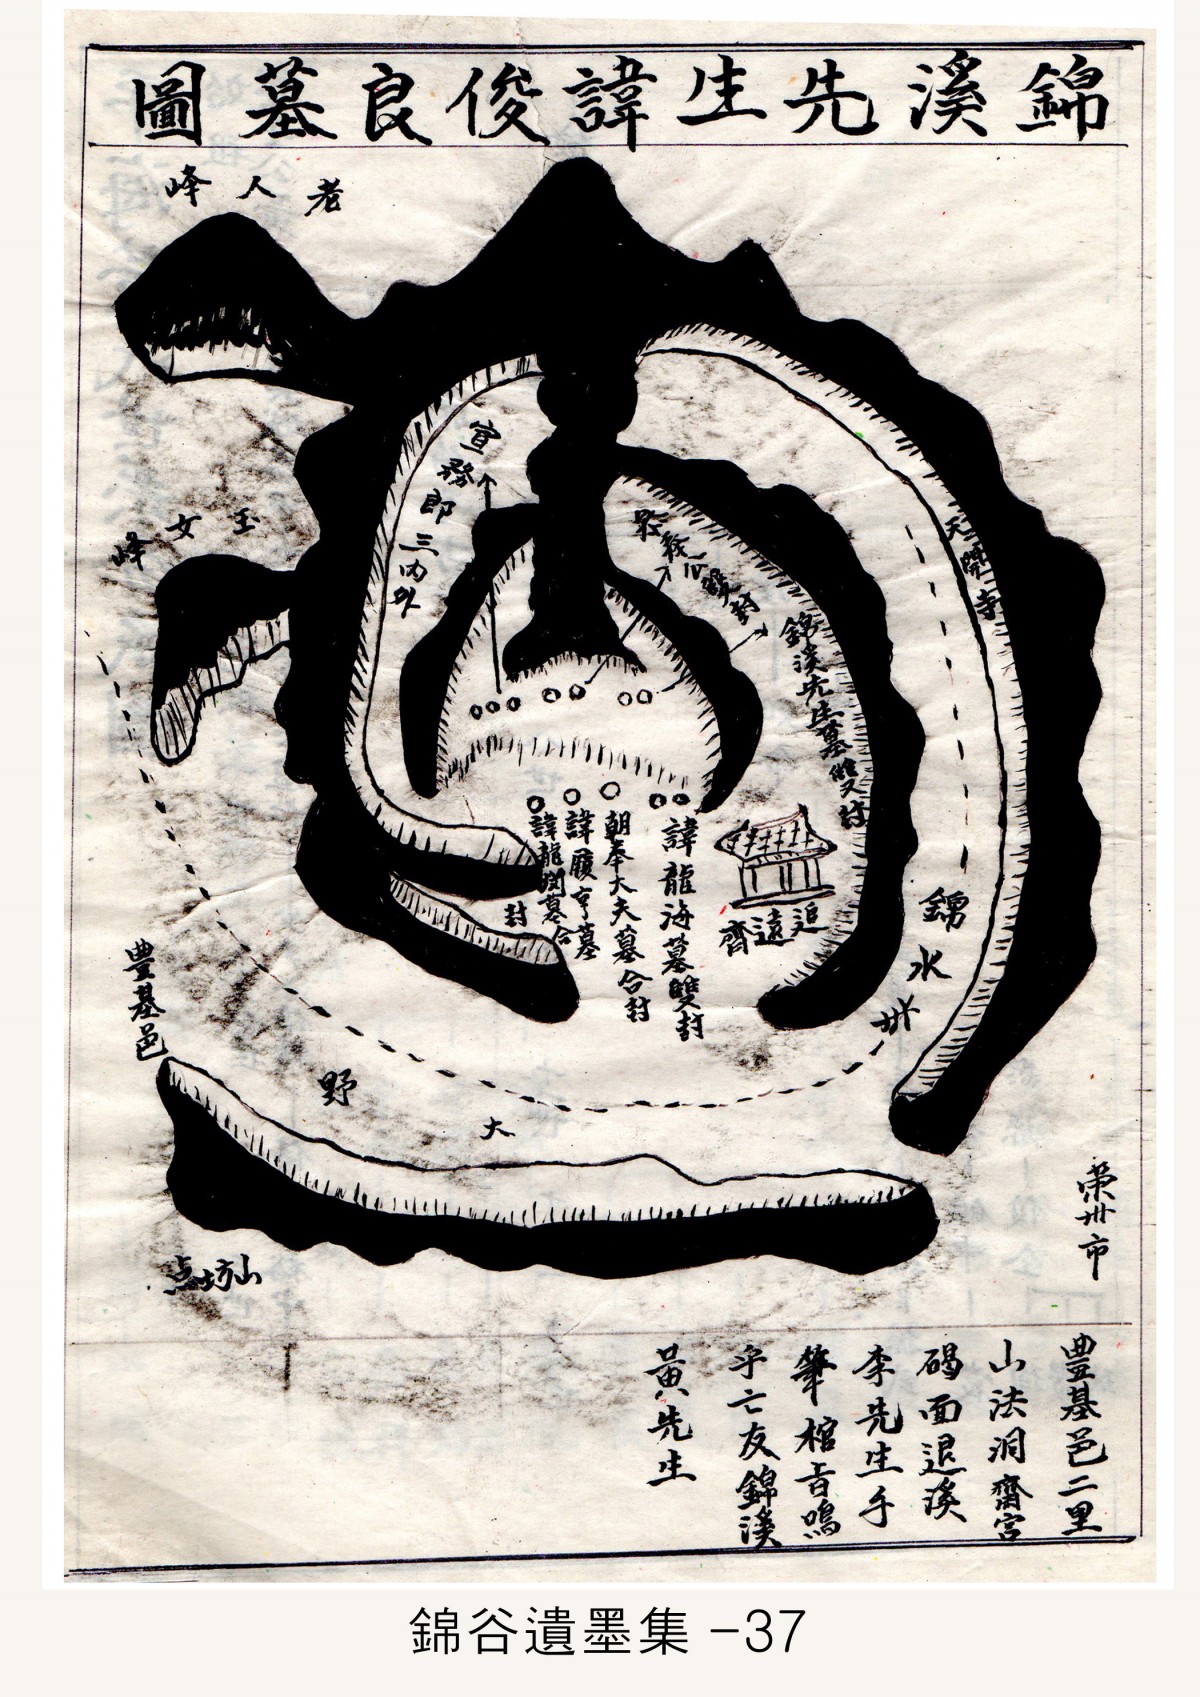 錦溪先生諱俊良墓圖
老人峰
玉女峰
宣務郎三內外
天開寺
錦溪先生墓雙封
諱龍海墓雙封
朝奉大夫墓合封
諱履亨墓
諱龍閏墓合封
追遠齋
錦水
豊基邑
大野
点坊山
榮州市
豊基邑二里
山法洞齋宮
碣面退溪
李先生手
筆棺音嗚
乎亡友錦溪
黃先生
錦谷遺墨集 -37